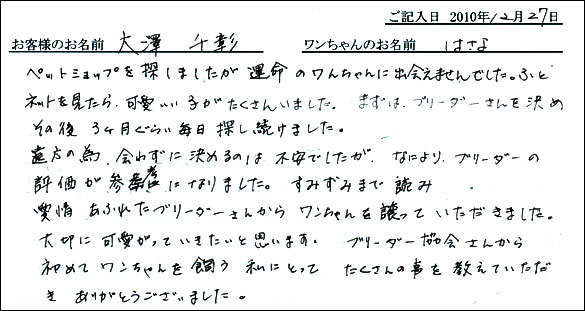 ご記入日 2010年12月27日
お客様のお名前 大澤 千彰 ワンちゃんのお名前 はるな
ペットショップを探しましたが運命のワんちゃんに出会えませんでした。ふと
ネットを見たら、可愛いい子がたくさんいました。まずは、ブリーダーさんを決め
その後 3ヶ月ぐらい毎日探し続けました。
遠方の為、会わずに決めるのは不安でしたが、なにより、ブリーダーの
評価が参考になりました。すみずみまで読み
愛情あふれたブリーダーさんからワンちゃんを譲っていただきました。
大切に可愛がっていきたいと思います。ブリーダー協会さんから
初めてワンちゃんを飼う私にとってたくさんの事を教えていただ
きありがとうございました。